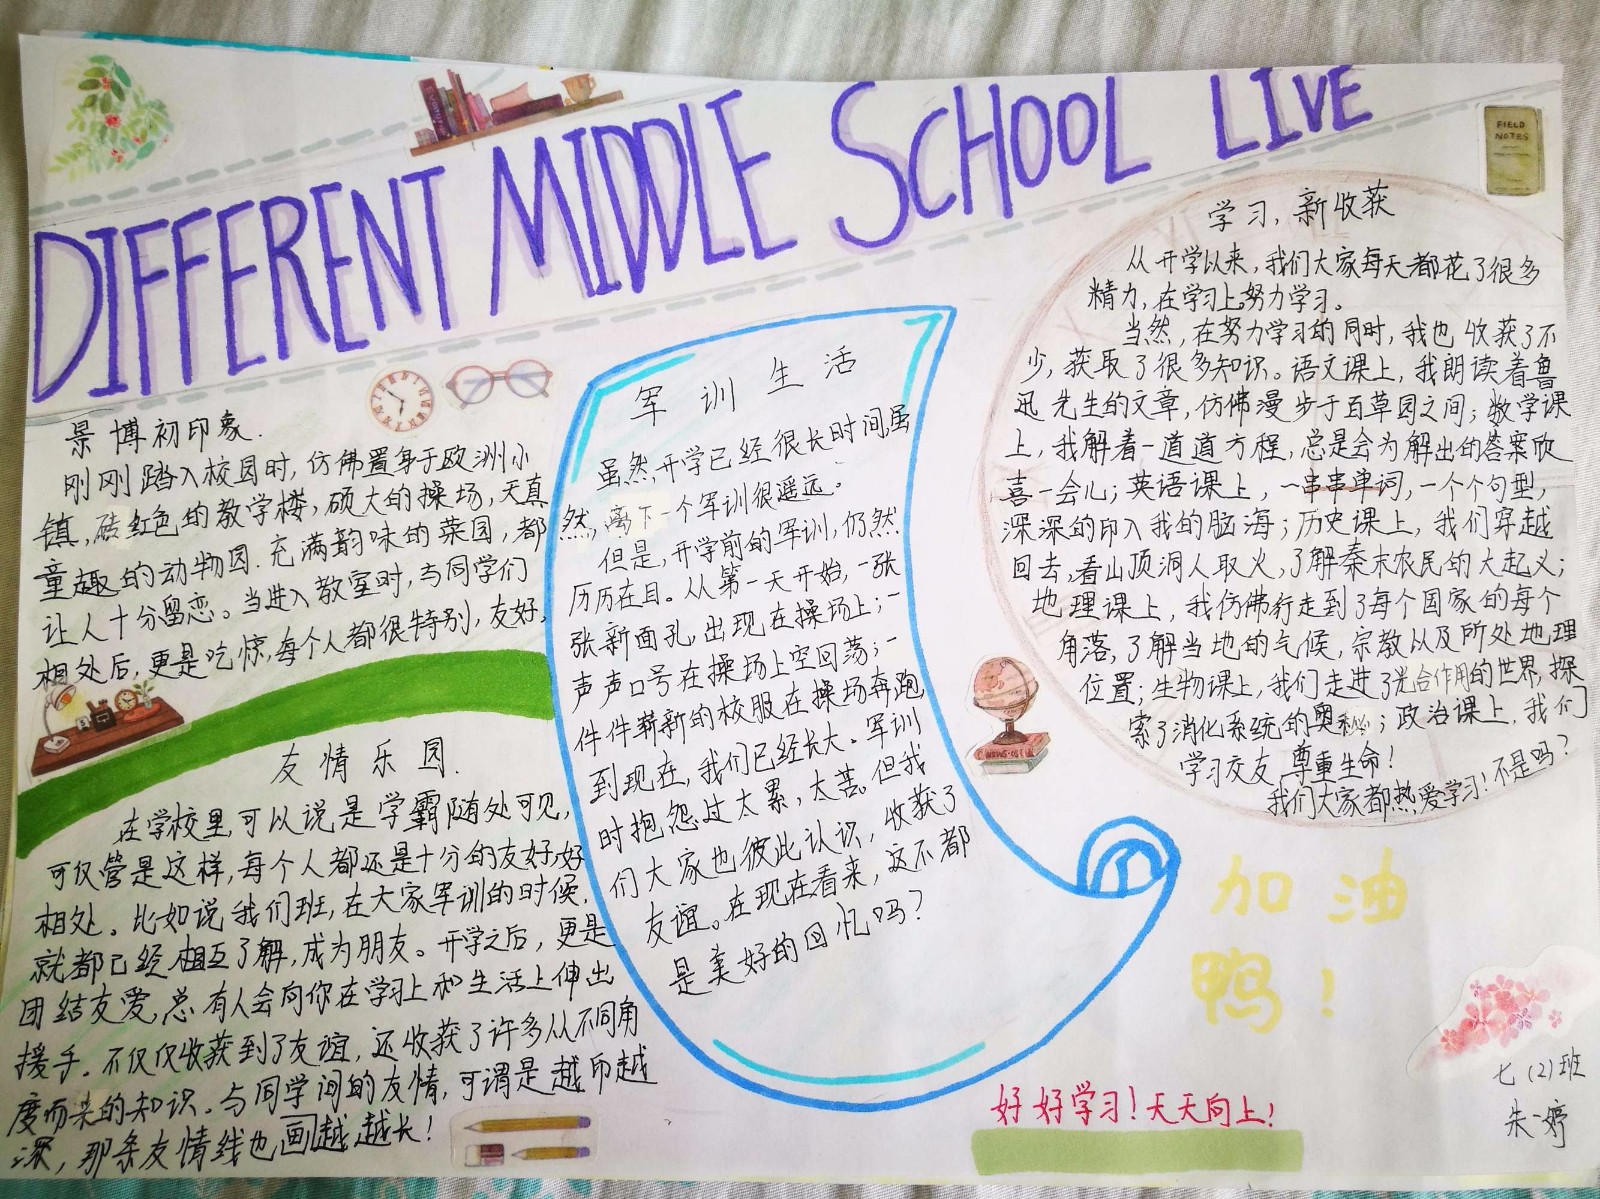 DIFFERENT MIDDLE SCHOOL LIVE
FIELD
NOTES
景博初印象.
刚刚踏入校园时,仿佛置身于欧洲小
镇,砖红色的教学楼,硕大的操场,天真
童趣的动物园.充满韵味的菜园,都
让人十分留恋。当进入教室时,与同学们
相处后,更是吃惊,每个人都很特别,友好,
友情乐园.
在学校里,可以说是学霸随处可见,
可仅管是这样,每个人都还是十分的友好,好
相处。比如说我们班,在大家军训的时候,
就都已经相互了解,成为朋友。开学之后,更是
团结友爱,总有人会向你在学习上和生活上伸出
援手.不仅仅收获到了友谊,还收获了许多从不同角
度而来的知识.与同学间的友情,可谓是越印越
深,那条友情线也画越越长!
军训生活
虽然,开学已经很长时间,虽
然,离下一个军训很遥远。
但是,开学前的军训,仍然
历历在目。从第一天开始,一张
张新面孔,出现在操场上;一
声声口号在操场上空回荡;一
件件崭新的校服在操场奔跑
到现在,我们已经长大.军训
时抱怨过太累,太苦.但我
们大家也彼此认识,收获了
友谊。在现在看来,这不都
是美好的回忆吗?
学习,新收获
从开学以来,我们大家每天都花了很多
精力,在学习上努力学习。
当然,在努力学习的同时,我也收获了不
少,获取了很多知识。语文课上,我朗读着鲁
迅先生的文章,仿佛漫步于百草园之间;数学课
上,我解着一道道方程,总是会为解出的答案欣
喜一会儿;英语课上,一串串单词,一个个句型,
深深的印入我的脑海;历史课上,我们穿越
回去,看山顶洞人取火,了解秦末农民的大起义;
地理课上,我仿佛行走到了每个国家的每个
角落,了解当地的气候,宗教以及所处地理
位置;生物课上,我们走进了光合作用的世界,探
索了消化系统的奥秘;政治课上,我们
学习交友,尊重生命!
我们大家都热爱学习!不是吗?
加油
鸭!
好好学习!天天向上!
七(2)班
朱一婷